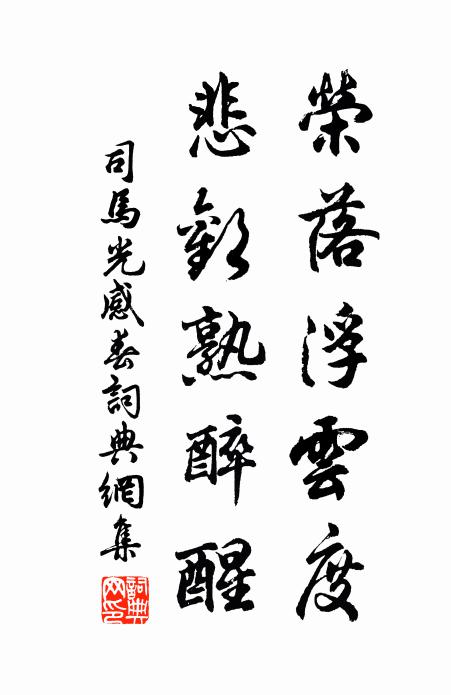 榮落浮雲度
悲歡熟醉醒
司馬光感春詞典網集
詞典
网印